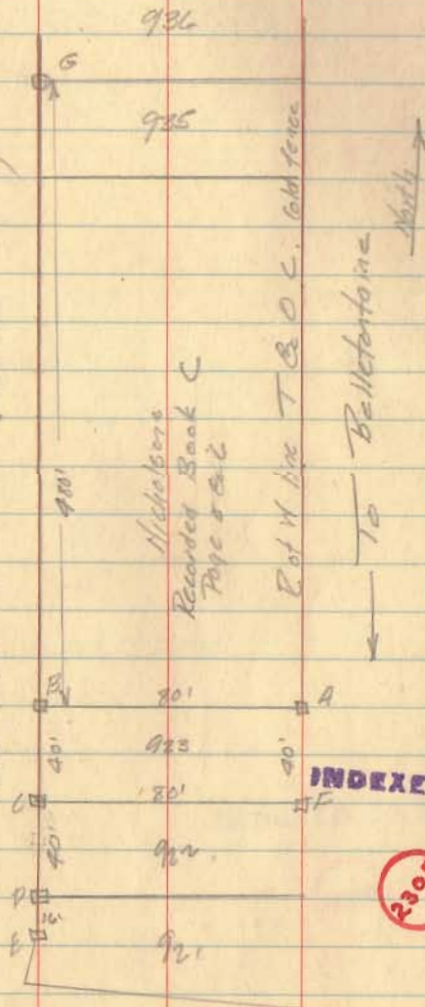 936
G
925
480'
Nicholsons
Recorded Book C
Page
R of W line T & O C. old fence
To Bellefontaine
North
B
80'
A
40'
923
40'
C
80'
F
INDEXE
40'
922
D
E
921
230